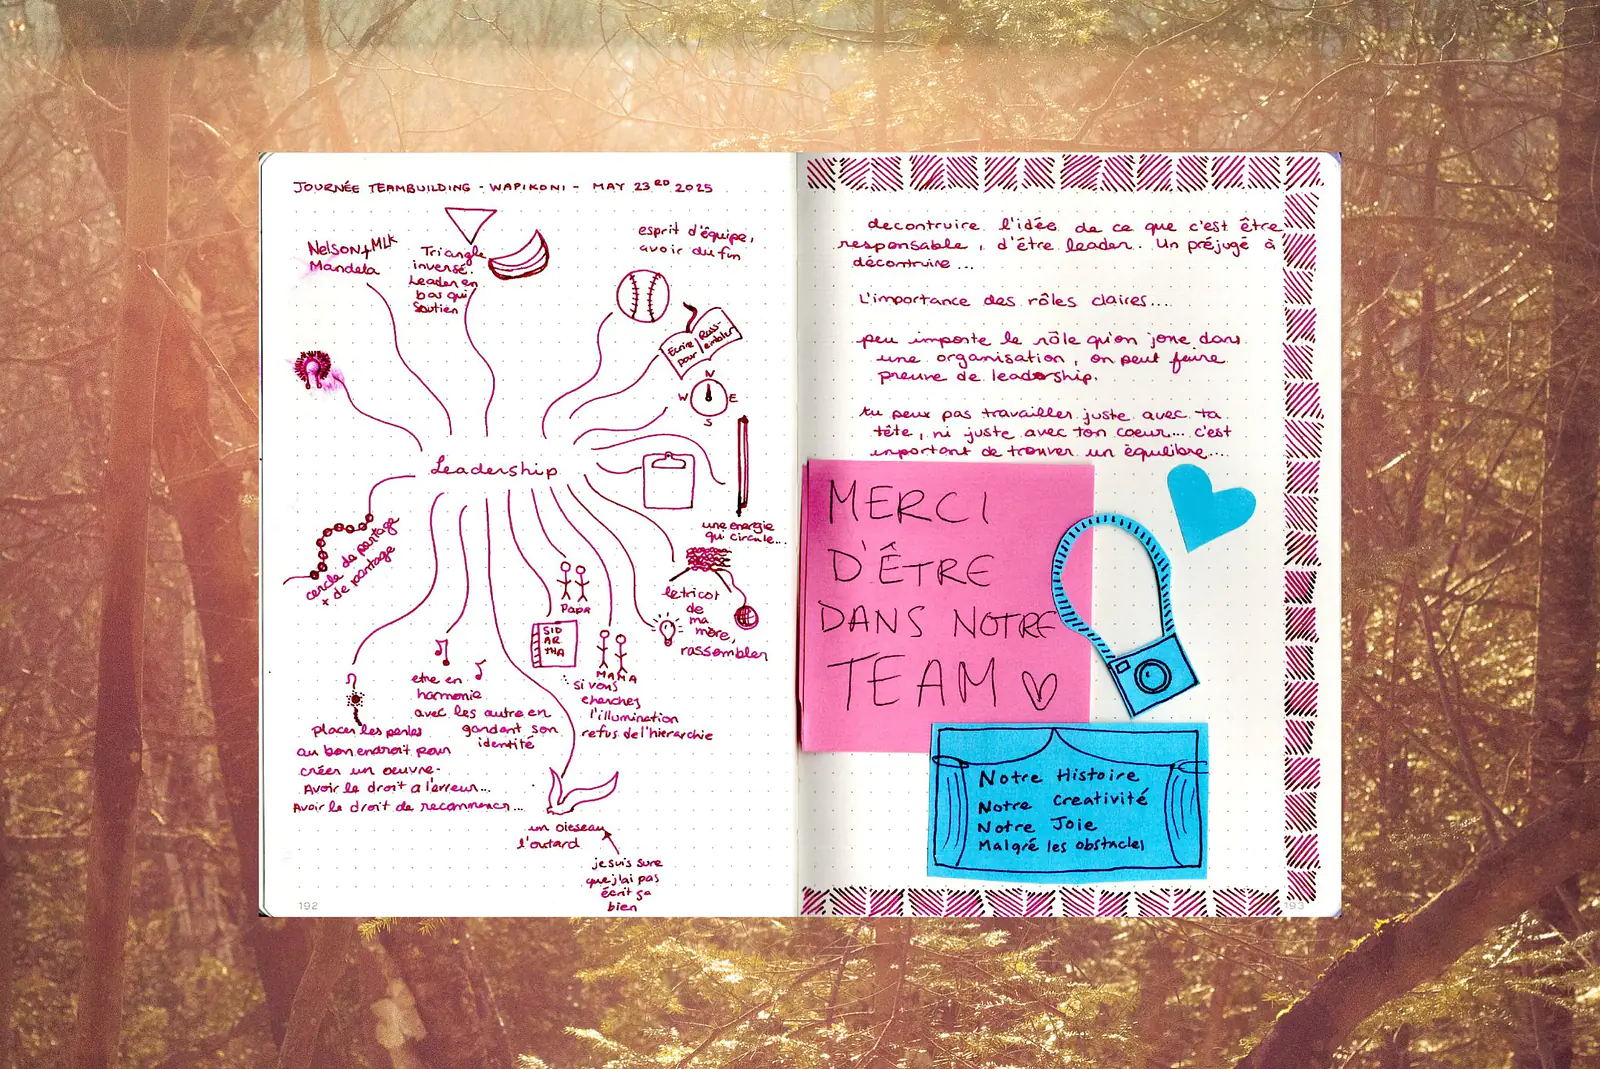 JOURNÉE TEAMBUILDING - WAPIKONI - MAY 23RD 2025
Nelson + MLK
Mandela
Triangle
inversé.
Leader en
bas qui
soutien
esprit d'équipe,
avoir du fun
Ecrire
pour
Rass-
embler
N
W E
S
Leadership
une energie
qui circule...
cercle de partage
+ de partage
le tricot
de
ma
mère,
rassembler
PAPA
SID
AR
THA
MAMA
si vous
cherchez
l'illumination
refus de l'hierarchie
etre en
harmonie
avec les autre en
gardant son
identité
placer les perles
au bon endroit pour
créer un oeuvre.
Avoir le droit a l'erreur...
Avoir le droit de recommencer...
un oieseau
l'outard
je suis sure
que j'ai pas
écrit ça
bien
192
decontruire l'idée de ce que c'est être
responsable, d'être leader.. Un préjugé à
décontruire...
L'importance des rôles claires....
peu importe le rôle qu'on joue dans
une organisation, on peut faire
preuve de leadership.
tu peux pas travailler juste avec ta
tête, ni juste avec ton coeur... c'est
important de trouver un équilibre....
MERCI
D'ÊTRE
DANS NOTRE
TEAM
Notre Histoire
Notre Creativité
Notre Joie
Malgré les obstacles
193